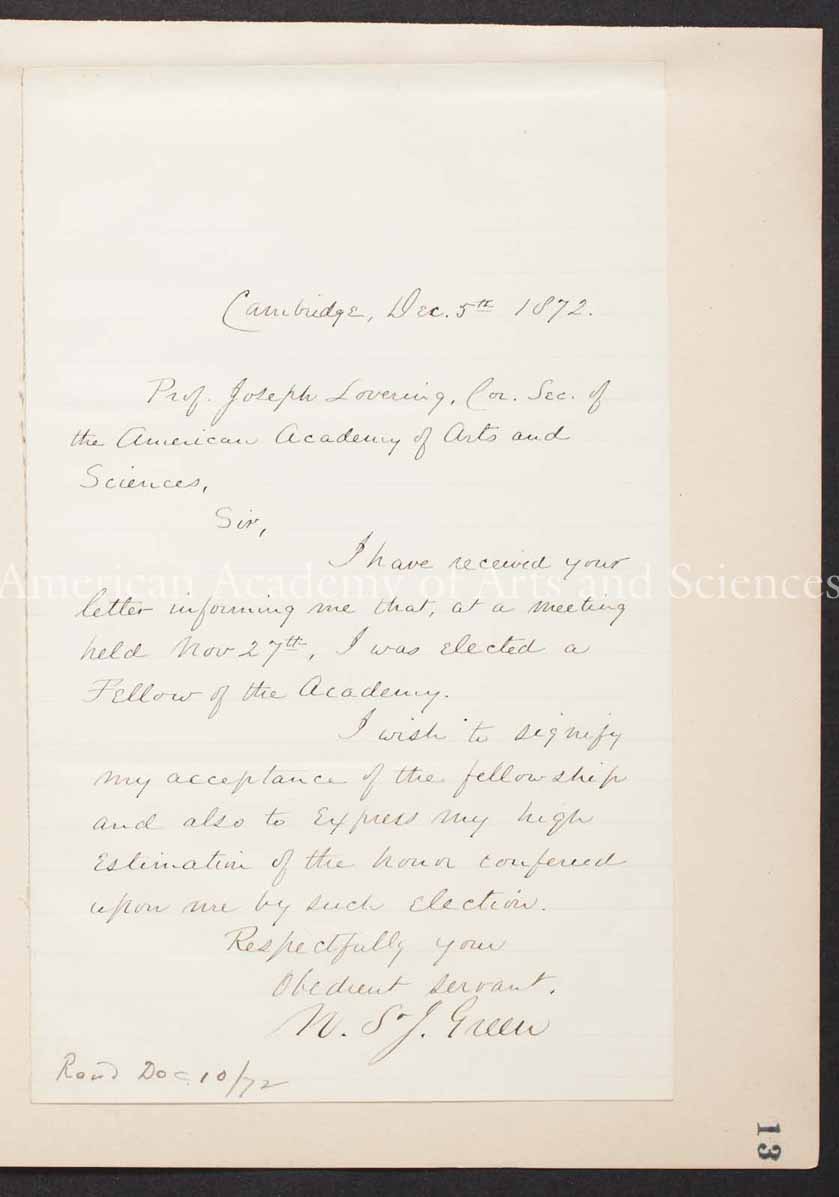 Cambridge, Dec. 5th 1872.
Prof. Joseph Lovering, Cor. Sec. of
the American Academy of Arts and
Sciences,
Sir,
I have received your
American Academy of Arts and Sciences
letter informing me that, at a meeting
held Nov 27th, I was elected a
Fellow of the Academy.
I wish to signify
my acceptance of the fellowship
and also to express my high
estimation of the honor conferred
upon me by such election.
Respectfully your
Obedient servant.
N. St. J. Green
Recd Dec. 10/72
13